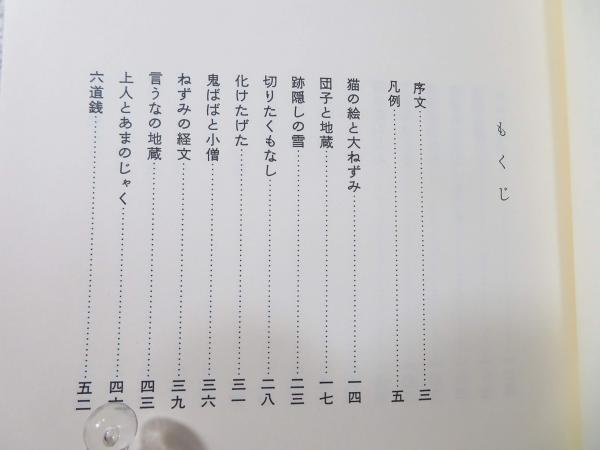 もくじ
序文……………………三
凡例……………………五
猫の絵と大ねずみ……………………一四
団子と地蔵……………………一七
跡隠しの雪……………………二三
切りたくもなし……………………二八
化けたげた……………………三一
鬼ばばと小僧……………………三六
ねずみの経文……………………三九
言うなの地蔵……………………四三
上人とあまのじゃく……………………四
六道銭……………………五二